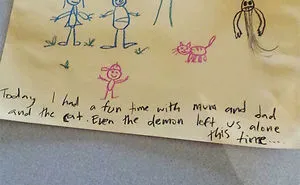 Today I had a fun time with mum and dad
and the cat. Even the demon left us alone
this time....